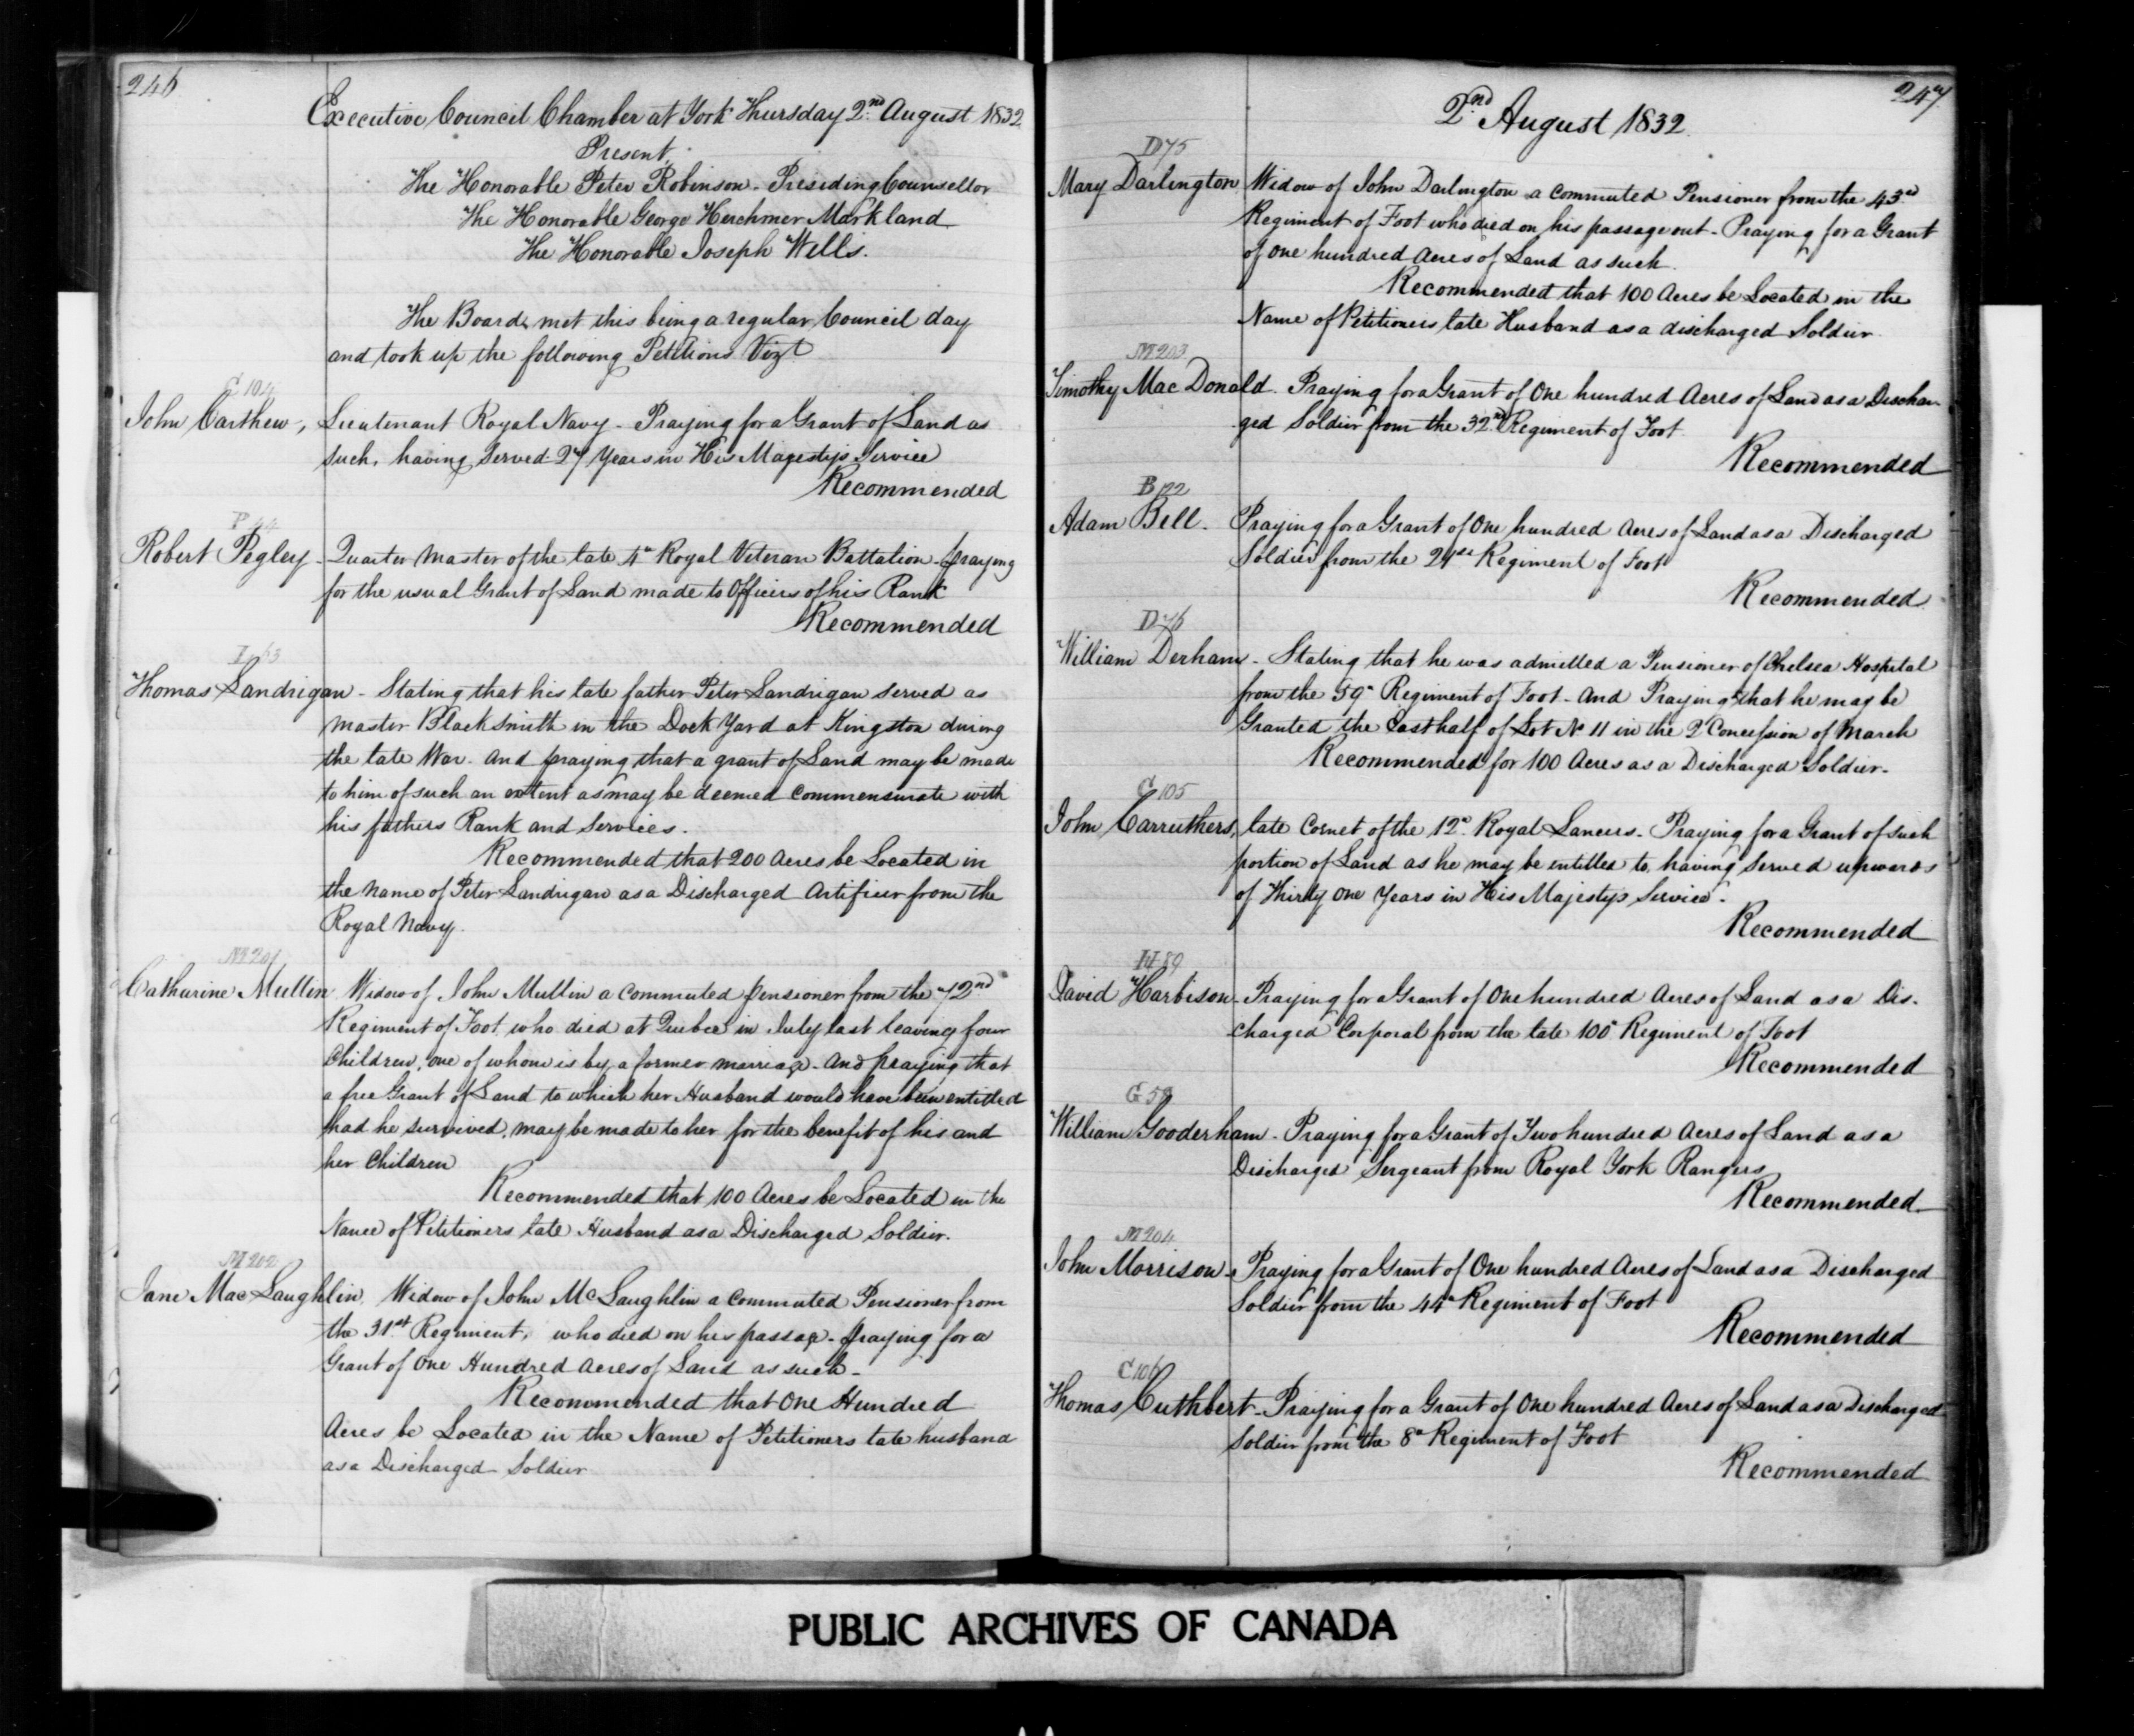 246
Executive Council Chamber at York Thursday 2nd August 1832
Present,
The Honorable Peter Robinson - Presiding Counsellor
The Honorable George Herchmer Markland
The Honorable Joseph Wells.
The Board met this being a regular Council day
and took up the following Petitions Vizt
C 104
John Carthew, Lieutenant Royal Navy - Praying for a Grant of Land as
such, having served 27 Years in His Magestys Service
Recommended
P 44
Robert Pegley - Quarter Master of the late 4th Royal Veteran Battalion - praying
for the usual Grant of Land made to Officers of his Rank
Recommended
L 63
Thomas Landrigan - Stating that his late father Peter Landrigan served as
Master Blacksmith in the Dock Yard at Kingston during
the late War. And praying that a grant of Land may be made
to him of such an extent as may be deemed commensurate with
his fathers Rank and Services.
Recommended that 200 Acres be Located in
the name of Peter Landrigan as a Discharged Artificer from the
Royal Navy.
M 201
Catharine Mullin Widow of John Mullin a commuted pensioner from the 72nd
Regiment of Foot, who died at Quebec in July last leaving four
Children, one of whom is by a former marriage - And praying that
a free Grant of Land to which her Husband would have been entitled
had he survived, may be made to her for the benefit of his and
her Children
Recommended that 100 Acres be Located in the
Name of Petitioners late Husband as a Discharged Soldier.
M 202
Jane Mac Laughlin, Widow of John McLaughlin a Commuted Pensioner from
the 31st Regiment, who died on his passage - praying for a
Grant of One Hundred Acres of Land as such -
Recommended that One Hundred
Acres be Located in the Name of Petitioners late husband
as a Discharged Soldier
247
2nd August 1832.
D 75
Mary Darlington Widow of John Darlington a commuted Pensioner from the 43rd
Regiment of Foot who died on his passage out - Praying for a Grant
of One hundred Acres of Land as such.
Recommended that 100 Acres be Located in the
Name of Petitioners late Husband as a discharged Soldier
M 203
Timothy Mac Donald. Praying for a Grant of One hundred Acres of Land as a Dischar-
ged Soldier from the 32nd Regiment of Foot
Recommended
B 122
Adam Bell - Praying for a Grant of One hundred Acres of Land as a Discharged
Soldier from the 21st Regiment of Foot
Recommended
D 76
William Derham - Stating that he was admitted a Pensioner of Chelsea Hospital
from the 59th Regiment of Foot - And Praying that he may be
Granted the East half of Lot No 11 in the 2d Concession of March
Recommended for 100 Acres as a Discharged Soldier -
C 105
John Carruthers, late Cornet of the 12th Royal Lancers - Praying for a Grant of such
portion of Land as he may be entitled to, having served upwards
of Thirty One Years in His Majestys Service.
Recommended
H 89
David Harbison - Praying for a Grant of One hundred Acres of Land as a Dis-
charged Corporal from the late 100th Regiment of Foot
Recommended
G 58
William Gooderham - Praying for a Grant of Two hundred Acres of Land as a
Discharged Sergeant from Royal York Rangers
Recommended.
M 204
John Morrison - Praying for a Grant of One hundred Acres of Land as a Discharged
Soldier from the 44th Regiment of Foot
Recommended
C 106
Thomas Cuthbert - Praying for a Grant of One hundred Acres of Land as a Discharged
Soldier from the 8th Regiment of Foot
Recommended
PUBLIC ARCHIVES OF CANADA